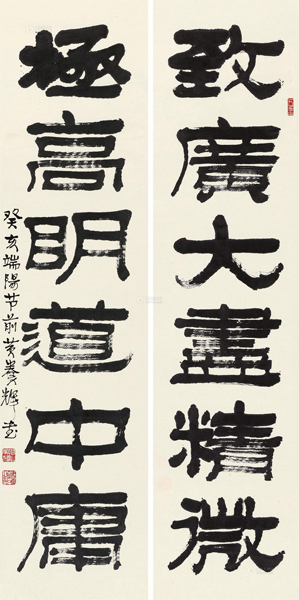 致廣大盡精微
極高明道中庸
癸亥端陽节前黄養輝書